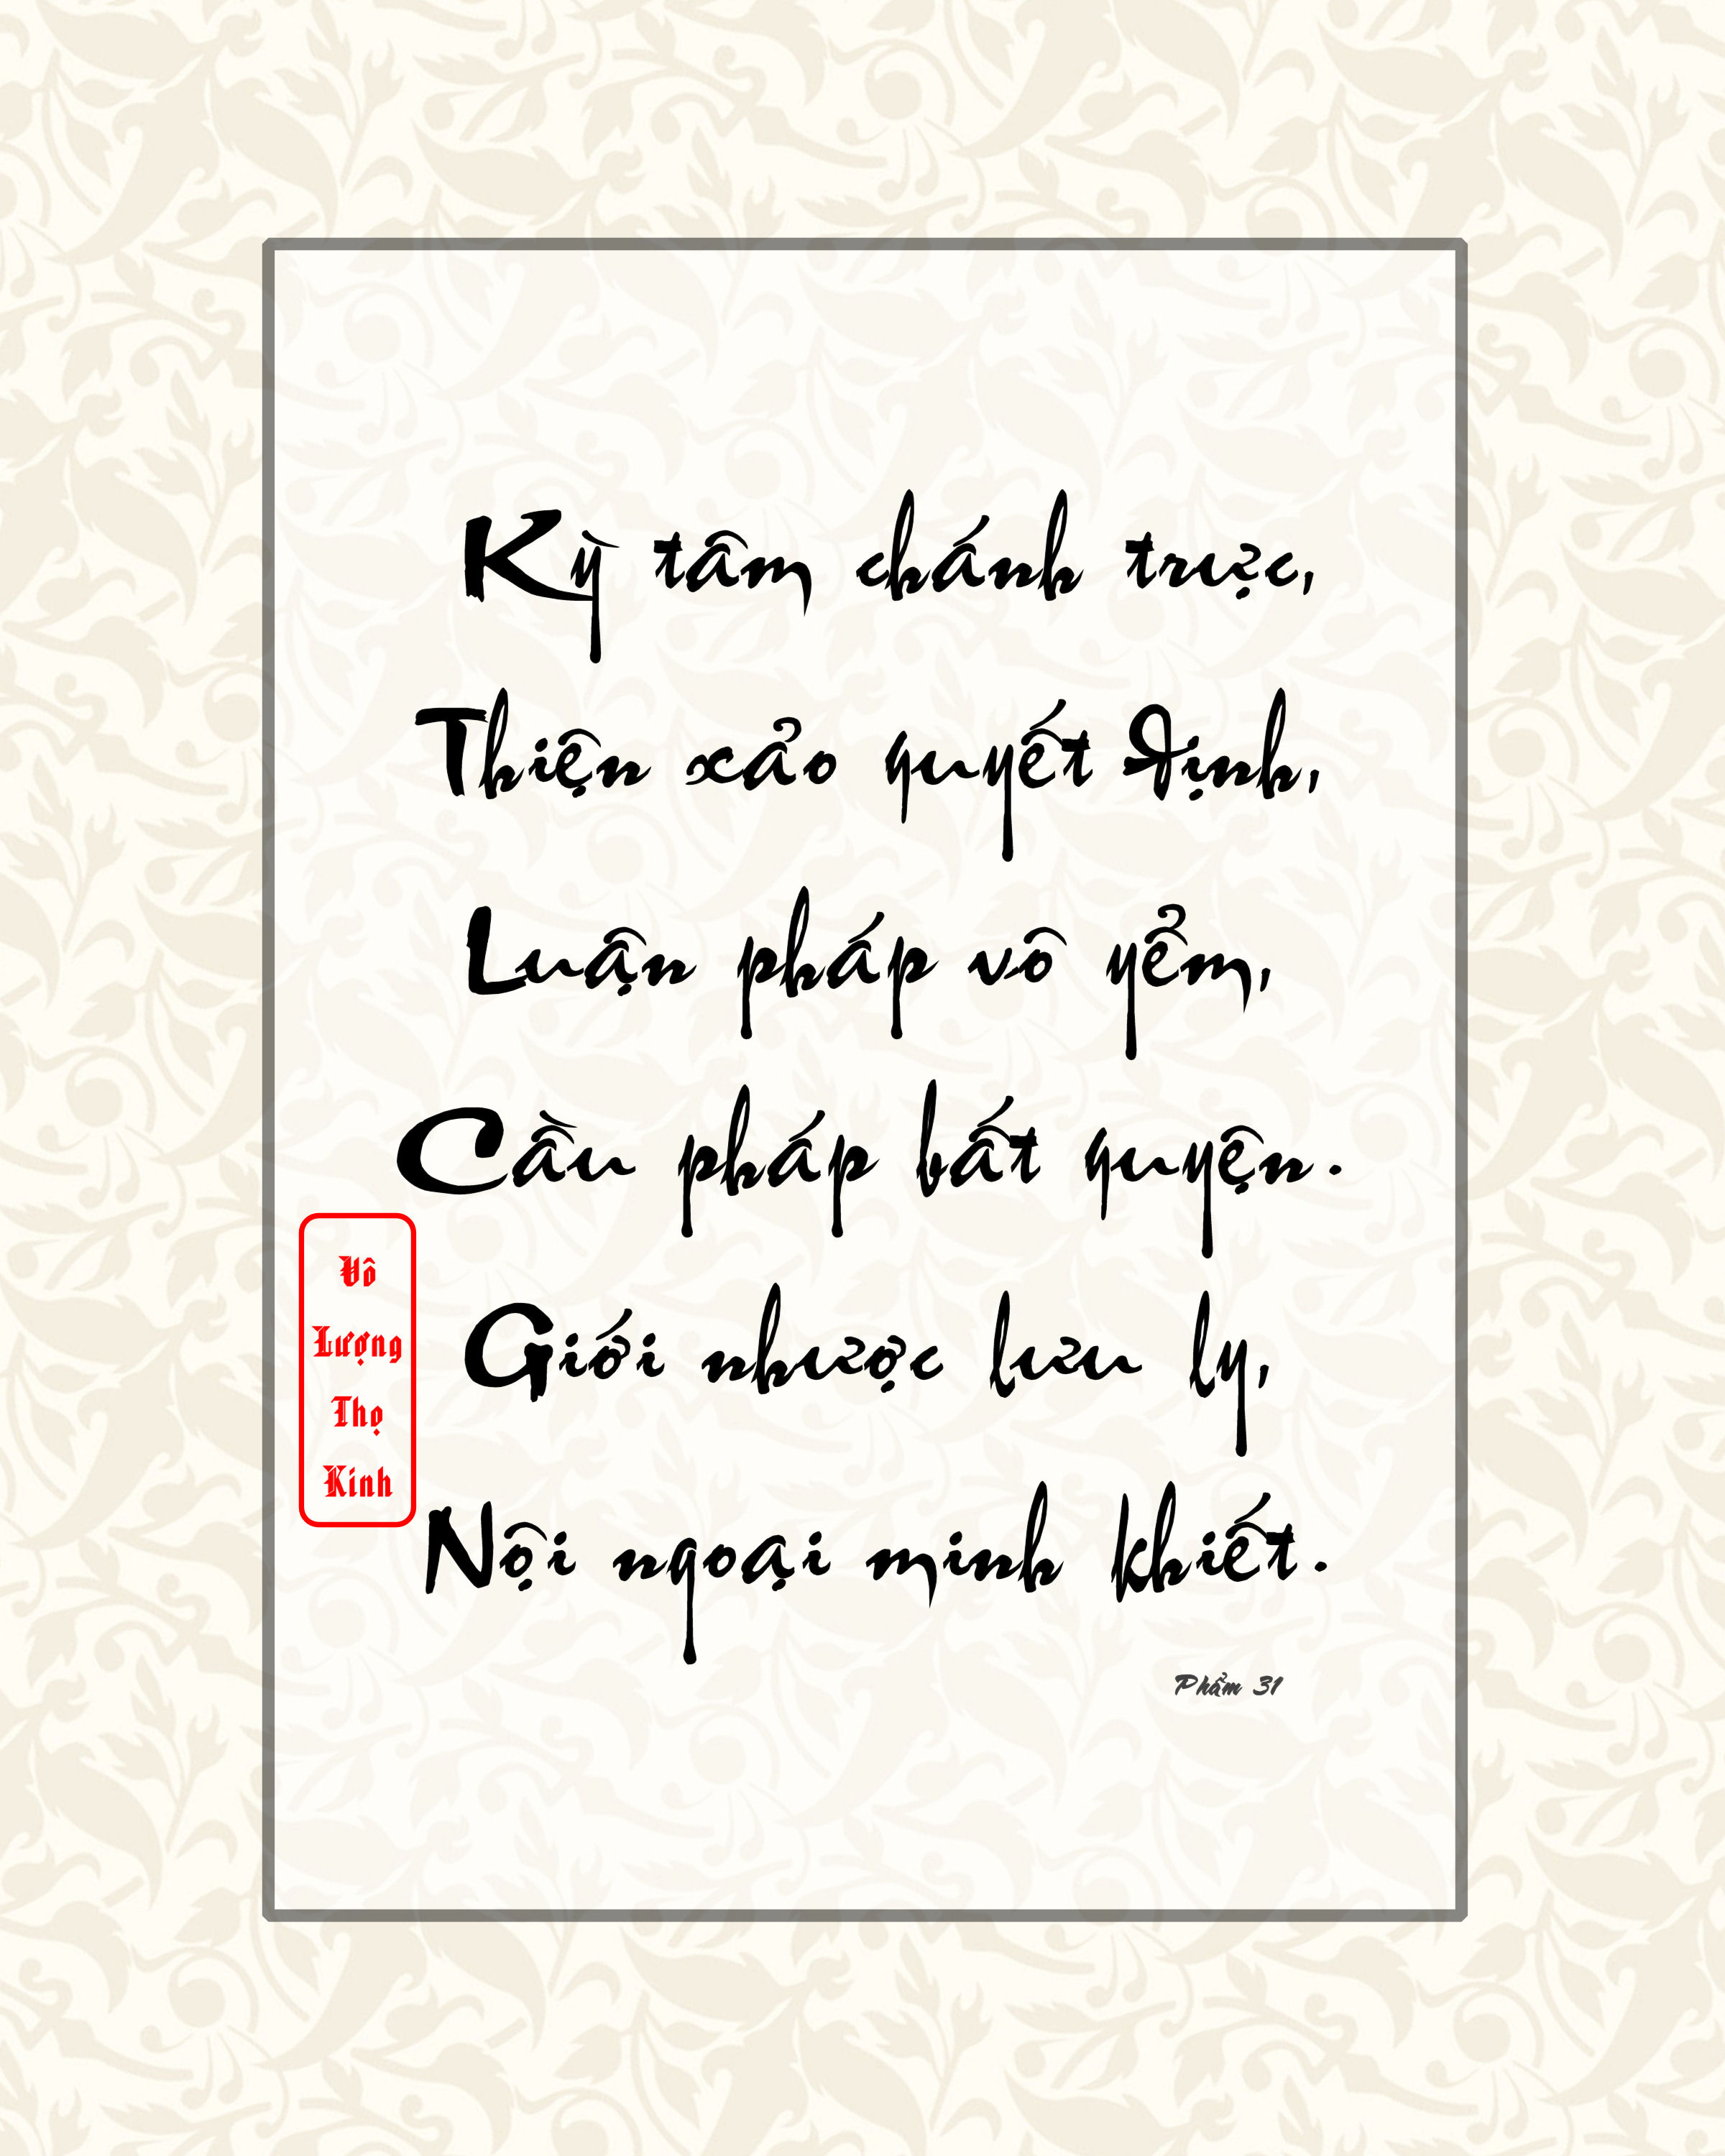 Kỳ tâm chánh trực,
Thiện xảo quyết Định,
Luận pháp vô yểm,
Cầu pháp bất quyện.
Giới nhược lưu ly,
Nội ngoại minh khiết.
Phẩm 31
Vô
Lượng
Thọ
Kinh